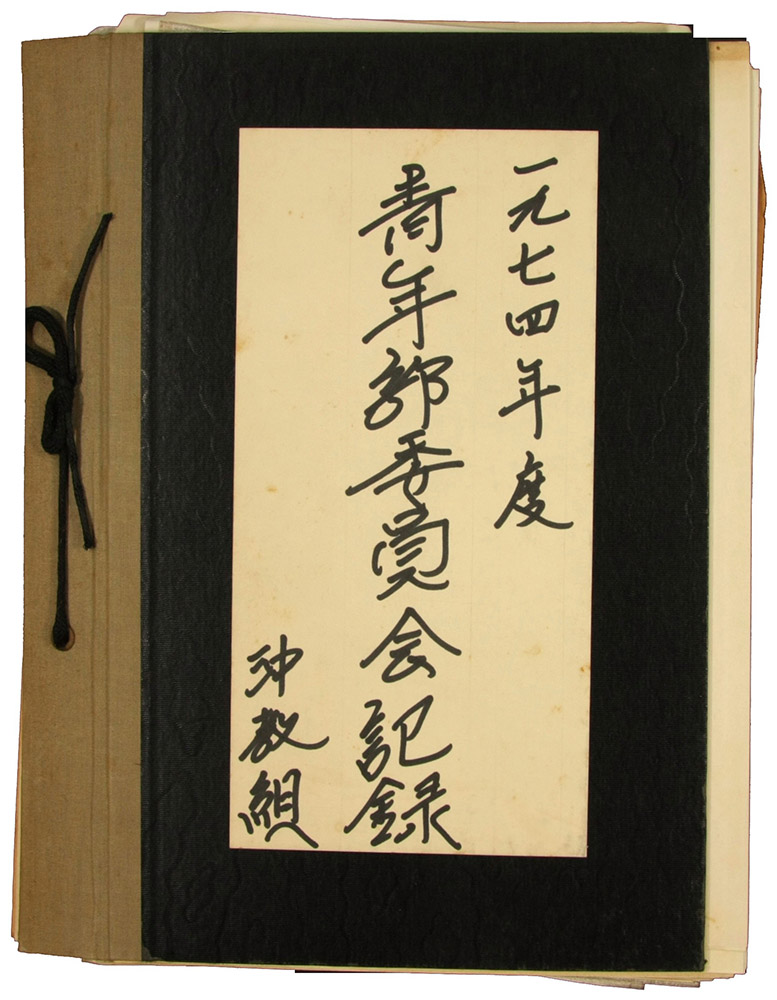 一九七四年度
青年部委員会記録
沖教組